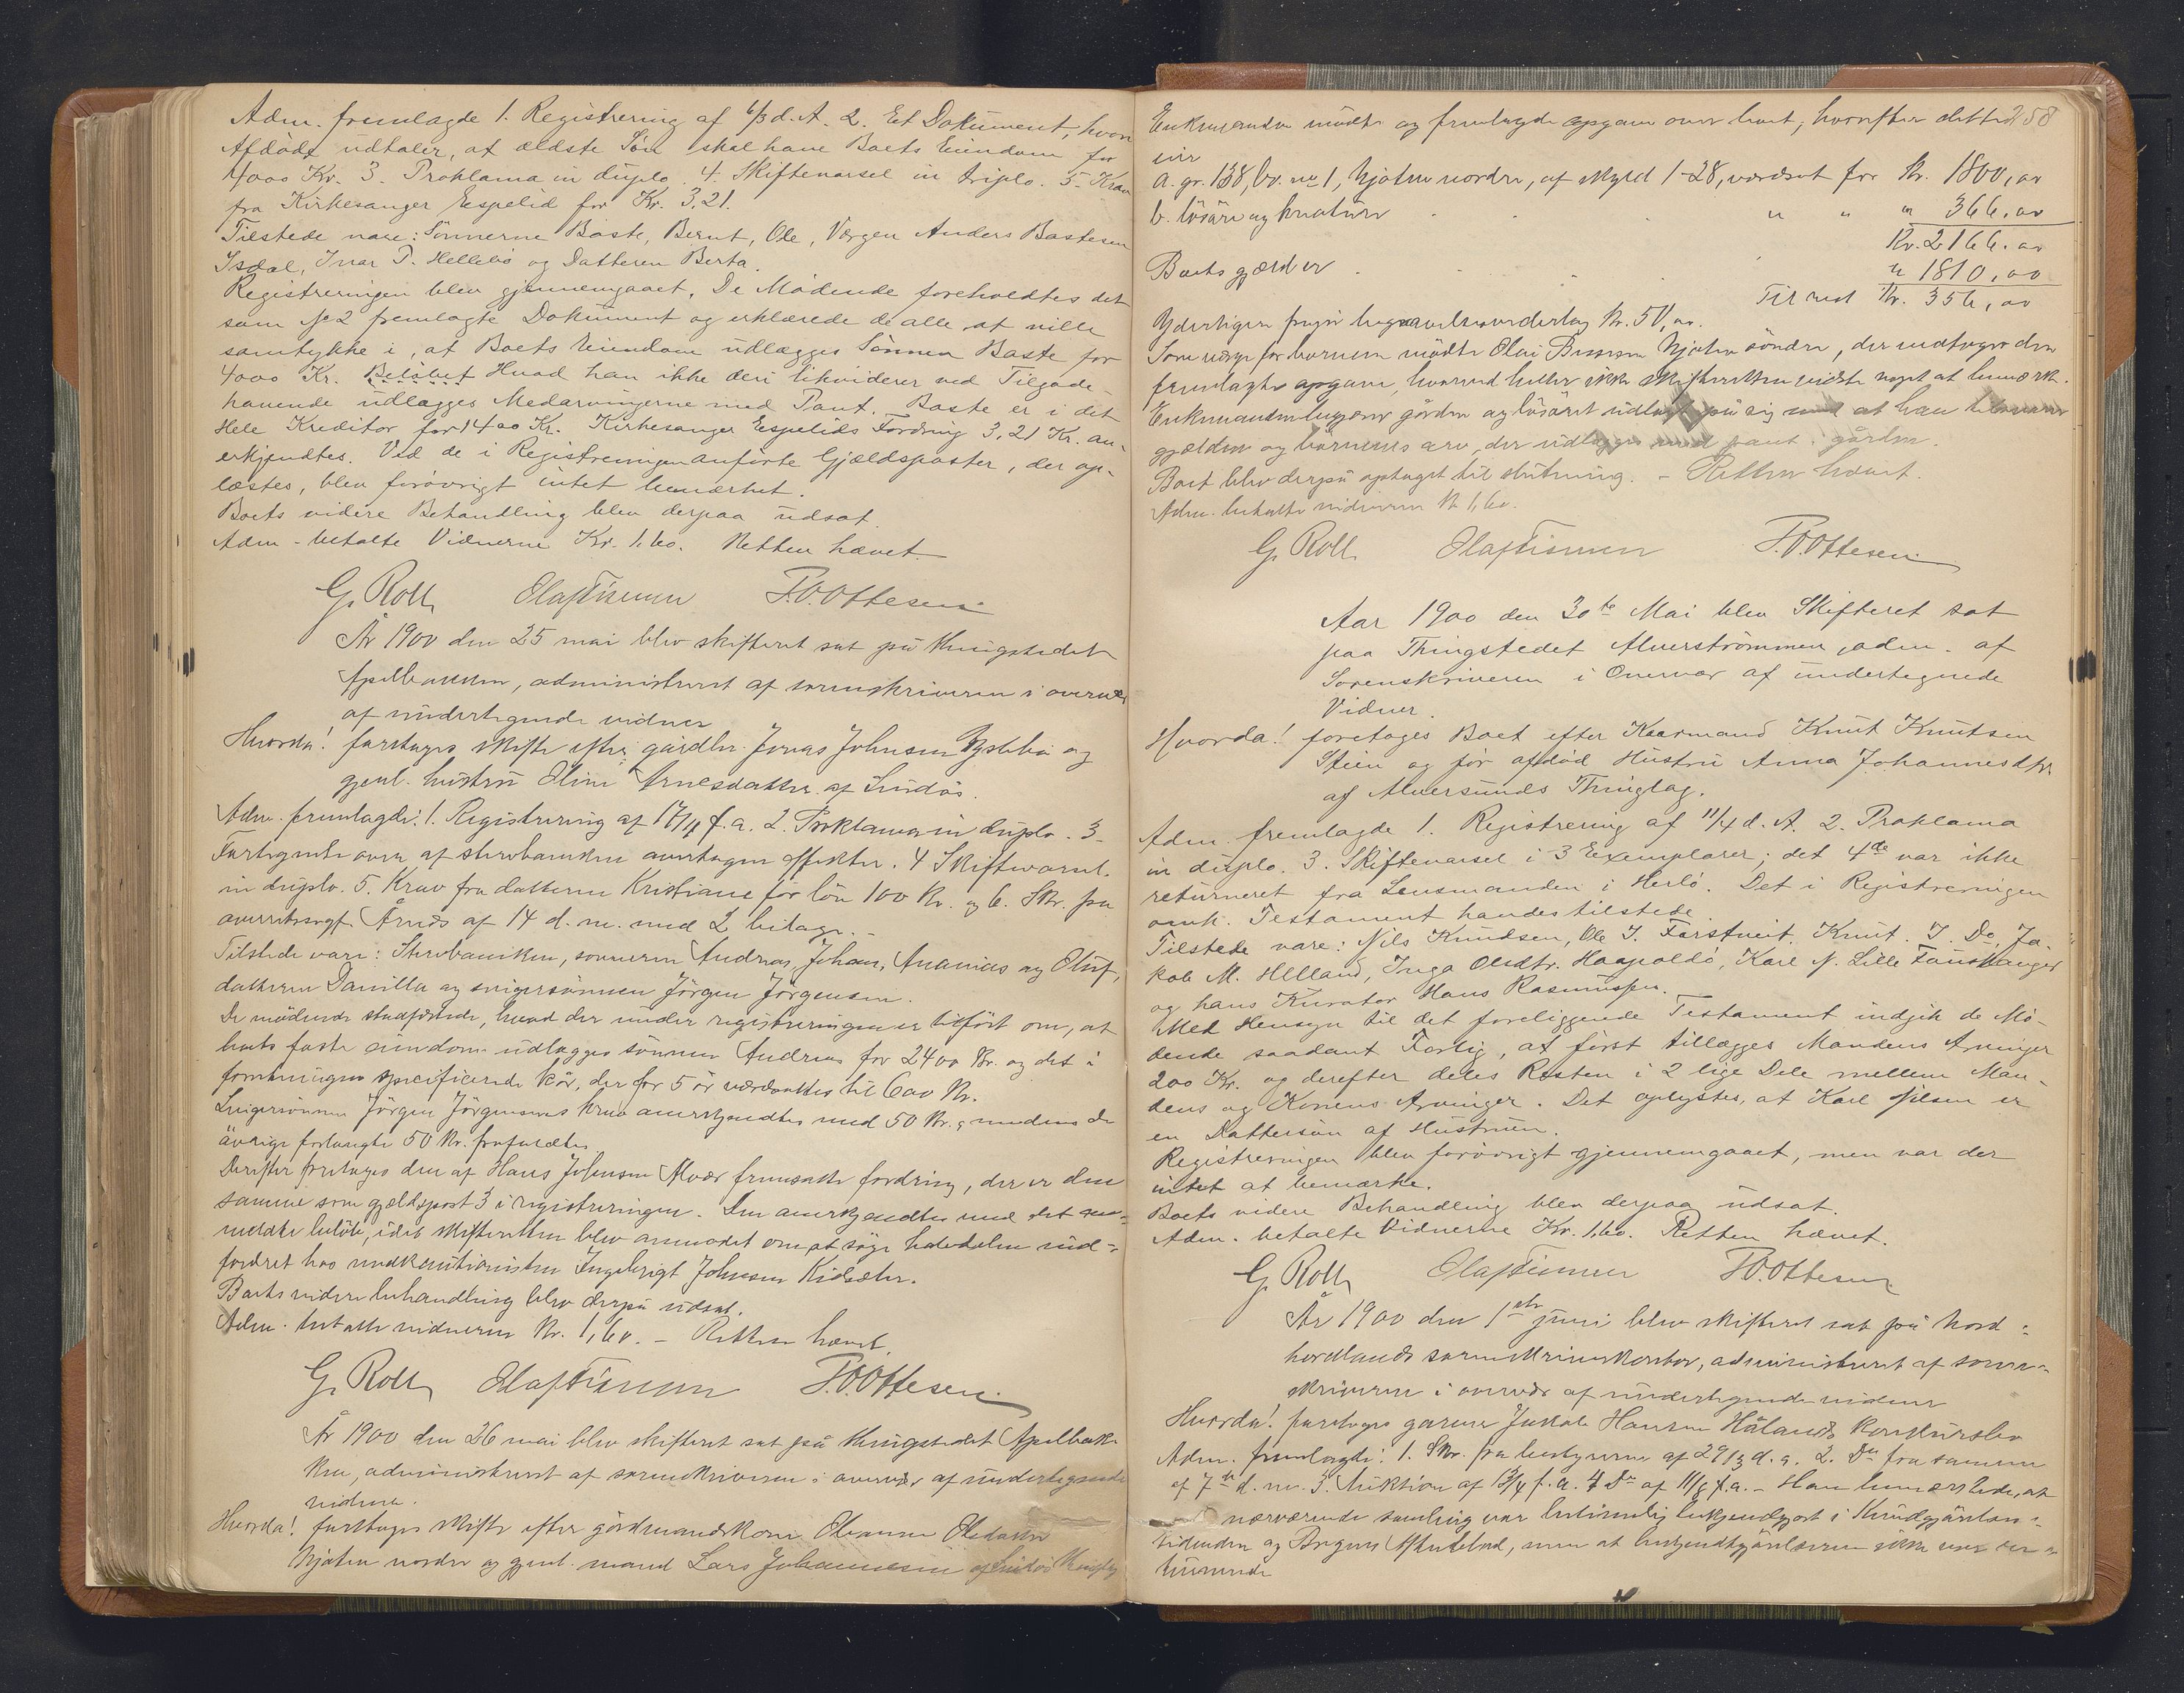 Adm. fremlagde 1. Registrering af 6/3 d. A. 2. Et Dokument, hvori
Afdøde udtaler, at ældste Søn skal have Boets Eiendom for
4000 Kr. 3. Proklama in duplo. 4. Skiftevarsel in triplo. 5. Krav
fra Kirkesanger Espelid for Kr. 3,21.
Tilstede vare: Sønnerne Baste, Bernt, Ole, Værgen Anders Bastesen
Isdal, Ivar P. Hellebø og Datteren Berta.
Registreringen blev gjennemgaaet. De Mødende foreholdtes det
som No 2 fremlagte Dokument og erklærede de alle at ville
samtykke i, at Boets Eiendom udlægges Sønnen Baste for
4000 Kr. Beløbet Hvad han ikke deri likviderer ved Tilgode-
havende udlægges Medarvingerne med Pant. Baste er i det
Hele Kreditor for 1400 Kr. Kirkesanger Espelids Fordring 3,21 Kr. an-
erkjendtes. Ved de i Registreringen anførte Gjældsposter, der op-
læstes, blev forøvrigt intet bemærket.
Boets videre Behandling blev derpaa udsat.
Adm. betalte Vidnerne Kr. 1,60. Retten hævet.
G. Roll Olaf P.O. Ottesen
År 1900 den 25 mai blev skifteret sat på thingstedet
Apelbakken, administreret af sorenskriveren i overvær
af undertegnede vidner
Hvorda! foretoges skifte efter gårdbr. Jonas Johnsen og
gjenl. hustru Oline Arnesdatter af Lindås.
Adm. fremlagde: 1. Registrering af f. a. 2. Proklama in duplo. 3.
Fortegnelse over af sterbbanken overtagne effekter. 4 Skiftevarsel
in duplo. 5. Krav fra datteren Kristiane for løn 100 Kr. og 6. Skr. fra
overretssagf. Årnes af 14 d. m. med 2 bilage. -
Tilstede vare: , sønnerne Andreas, Johan, Ananias og Oluf,
datteren Danilla og svigersønnen Jørgen Jørgensen.
De mødende stadfæstede, hvad der under registreringen er tilført om, at
boets faste eiendom udlægges sønnen Andreas for 2400 Kr. og det i
forretningen specificerede kår, der for 5 år værdsattes til 600 Kr.
Svigersønnen Jørgen Jørgensens krav anerkjendtes med 50 Kr., medens de
øvrige forlangte 50 Kr. frafaldtes
Derefter foretoges den af Hans Johnsen Alvær fremsatte fordring, der er den
samme som gjældspost 3 i registreringen. Den anerkjendtes med det an-
meldte beløb, idet skifteretten blev anmodet om at søge halvdelen ind-
fordret hos medkautionisten Ingebrigt Johnsen Kidsæter.
Boets videre behandling blev derpå udsat.
Adm. betalte vidnerne Kr. 1,60. - Retten hævet.
G. Roll Olaf P.O. Ottesen.
År 1900 den 26 mai blev skifteret sat på thingstedet Apelbak-
ken, administreret af sorenskriveren i overvær af undertegnede
vidner.
Hvorda! foretoges skifte efter gårdmandskone Olsdatter
nordre og gjenl. mand Lars Johannesen af Lindås thinglag
258
Enkemanden mødte og fremlagde opgave over boet, hvorefter dette
eier
a. gr. 138, br. no 1, nordre, af skyld 1-28, værdsat for Kr. 1800,00
b. løsøre og kreaturer " " " 366,00
Kr. 2166,00
Boets gjæld er " 1810,00
Til rest Kr. 356,00
Yderligere fragår begravelsesvederlag Kr. 50,00.
Som værge for børnene mødte søndre, der vedtager den
fremlagte opgave, hvorved heller ikke skifteretten vidste noget at bemærke.
Enkemanden begjærer gården og løsøret udlagt på sig mod at han
gjælden og børnenes arv, der udlægges med pant i gården.
Boet blev derpå optaget til slutning. - Retten hævet.
Adm. betalte vidnerne Kr. 1,60.
G. Roll Olaf P.O. Ottesen
Aar 1900 den 30te Mai blev Skifteret sat
paa Thingstedet Alverstrømmen, adm. af
Sorenskriveren i Overvær af undertegnede
Vidner.
Hvorda! foretoges Boet efter Kaarmand Knut Knutsen
og før afdød Hustru Anna Johannesdtr.
af Alversunds Thinglag.
Adm. fremlagde 1. Registrering af 11/4 d. A. 2. Proklama
in duplo. 3. Skiftevarsel i 3 Exemplarer; det 4de var ikke
returneret fra Lensmanden i Herlø. Det i Registreringen
omh. Testament havdes tilstede.
Tilstede vare: Nils Knudsen, Ole I. Fosstveit, Knut I. Do, Ja-
kob M. Helland, Inga Olsdtr. , Karl N. Lille Fauskanger
og hans Kurator Hans Rasmussen.
Med Hensyn til det foreliggende Testament indgik de Mø-
dende saadant Forlig, at først tillægges Mandens Arvinger
200 Kr. og derefter deles Resten i 2 lige Dele mellem Man-
dens og Konens Arvinger. Det oplystes, at Karl Nilsen er
en Dattersøn af Hustruen.
Registreringen blev forøvrigt gjennemgaaet, men var der
intet at bemærke.
Boets videre Behandling blev derpaa udsat.
Adm. betalte Vidnerne Kr. 1,60. Retten hævet.
G. Roll Olaf P.O. Ottesen
År 1900 den 1ste juni blev skifteret sat på Nord-
hordlands sorenskriverkontor, administreret af soren-
skriveren i overvær af undertegnede vidner
Hvorda! foretoges garver Jakob Hansen Hålands konkursbo
Adm. fremlagde: 1. Skr. fra bestyreren af 29/3 d. a. 2. Do fra samme
af 7de d. m. 3. Auktion af f. a. 4 Do af 11/8 f. a. - Han bemærkede, at
nærværende samling var betimelig bekjendtgjort i Kundgjørelses-
tidenden og Bergens Aftenblad, men at bekjendtgjørelserne ikke